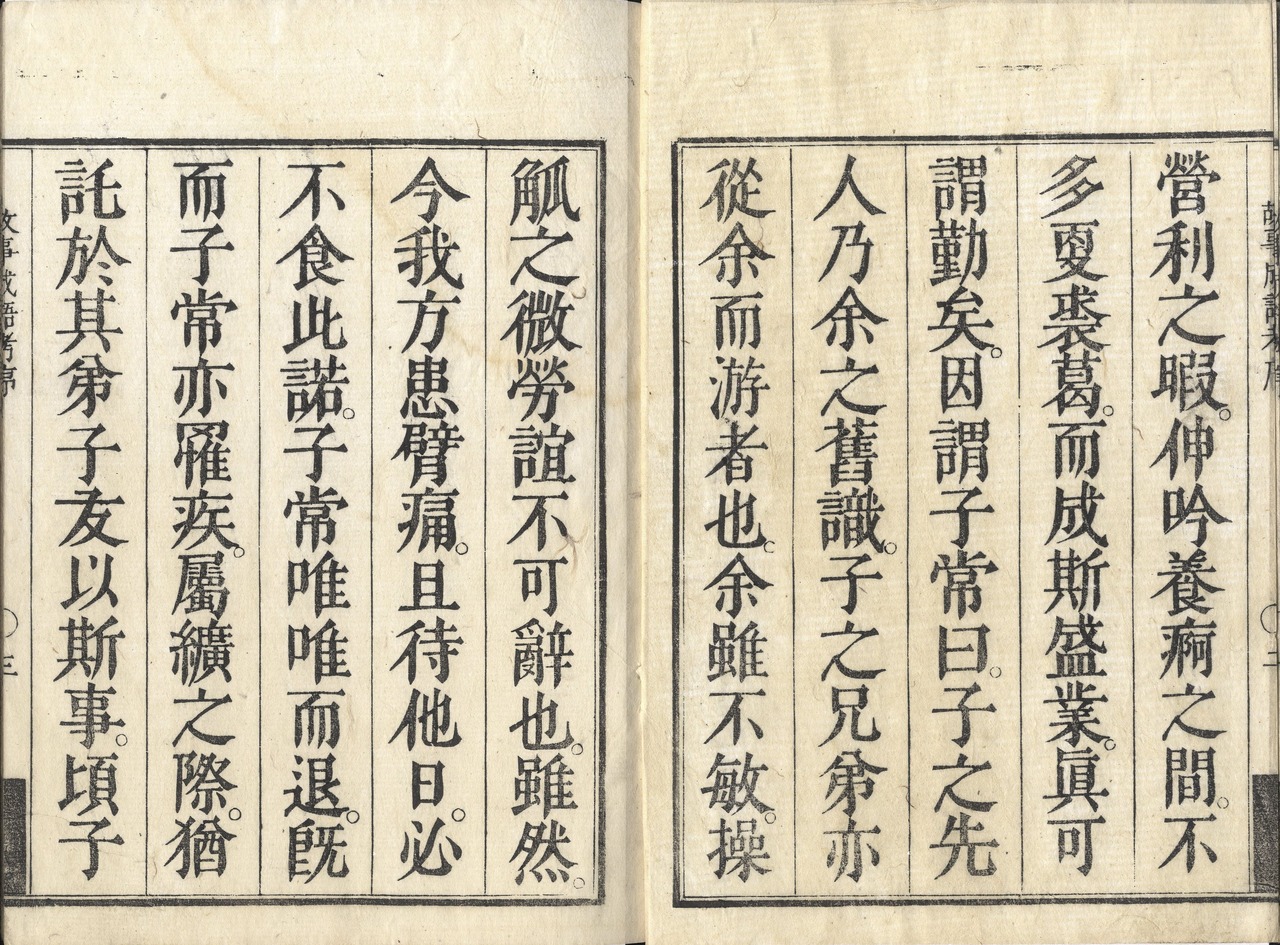 故事成語考序
二
營利之暇。伸吟養痾之間。不
多夏裘葛。而成斯盛業。眞可
謂勤矣。因謂子常曰。子之先
人乃余之舊識。子之兄弟亦
從余而游者也。余雖不敏。操
觚之微勞誼不可辭也。雖然。
今我方患臂痛。且待他日。必
不食此諾。子常唯唯而退。旣
而子常亦罹疾。屬纊之際。猶
託於其弟子友以斯事。頃子
故事成語考序
三